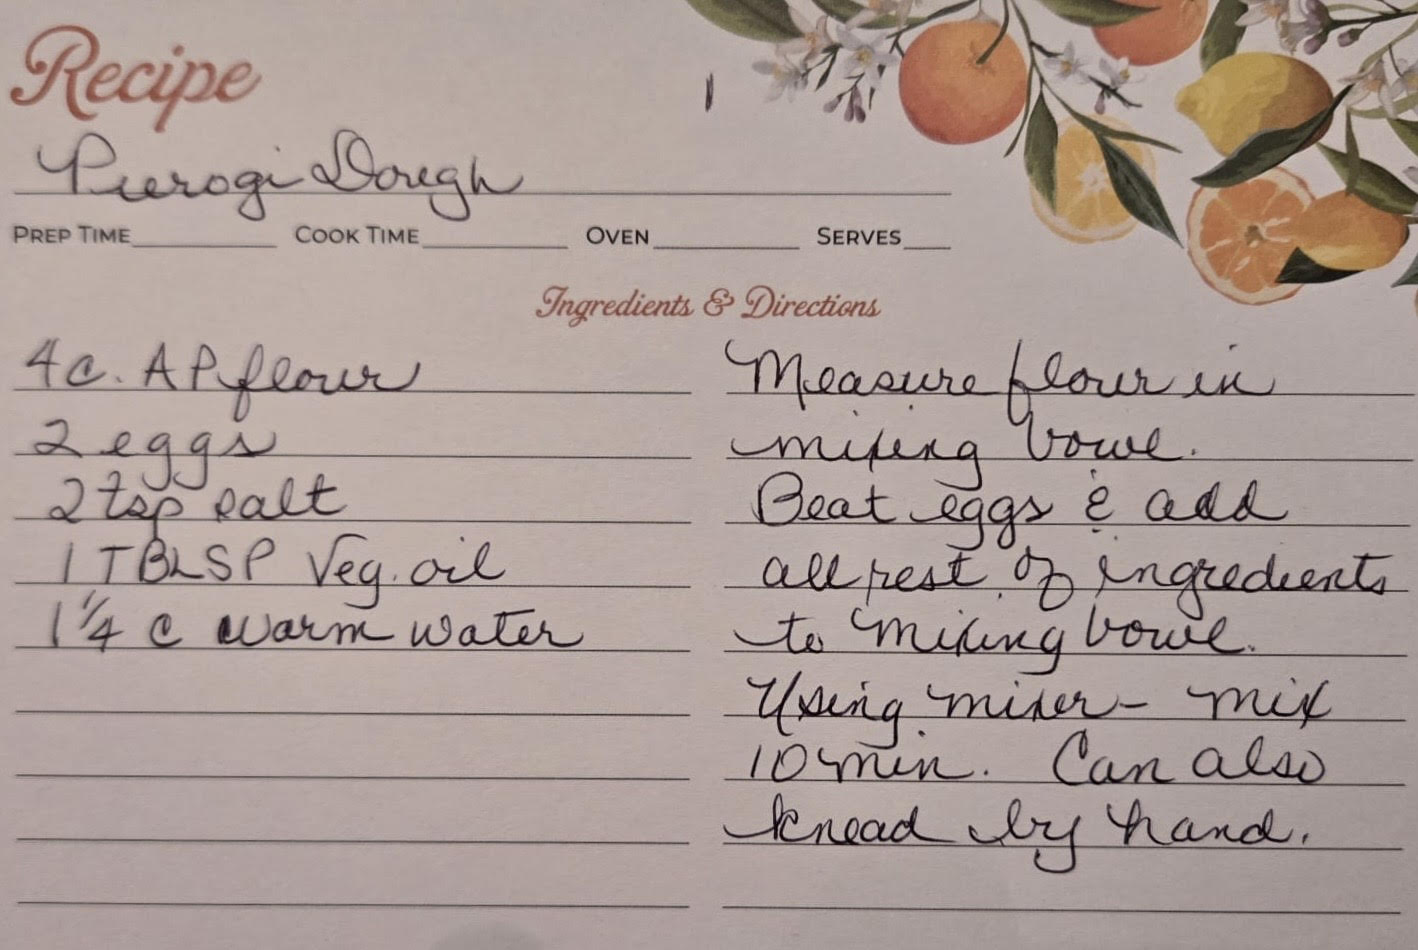 Recipe
Pierogi Dough
PREP TIME COOK TIME OVEN SERVES
Ingredients & Directions
4 c. AP flour
2 eggs
2 tsp salt
1 TBLSP Veg. oil
1 1/4 c warm water
Measure flour in
mixing bowl.
Beat eggs & add
all rest of ingredients
to mixing bowl.
Using mixer - mix
10 min. Can also
knead by hand.